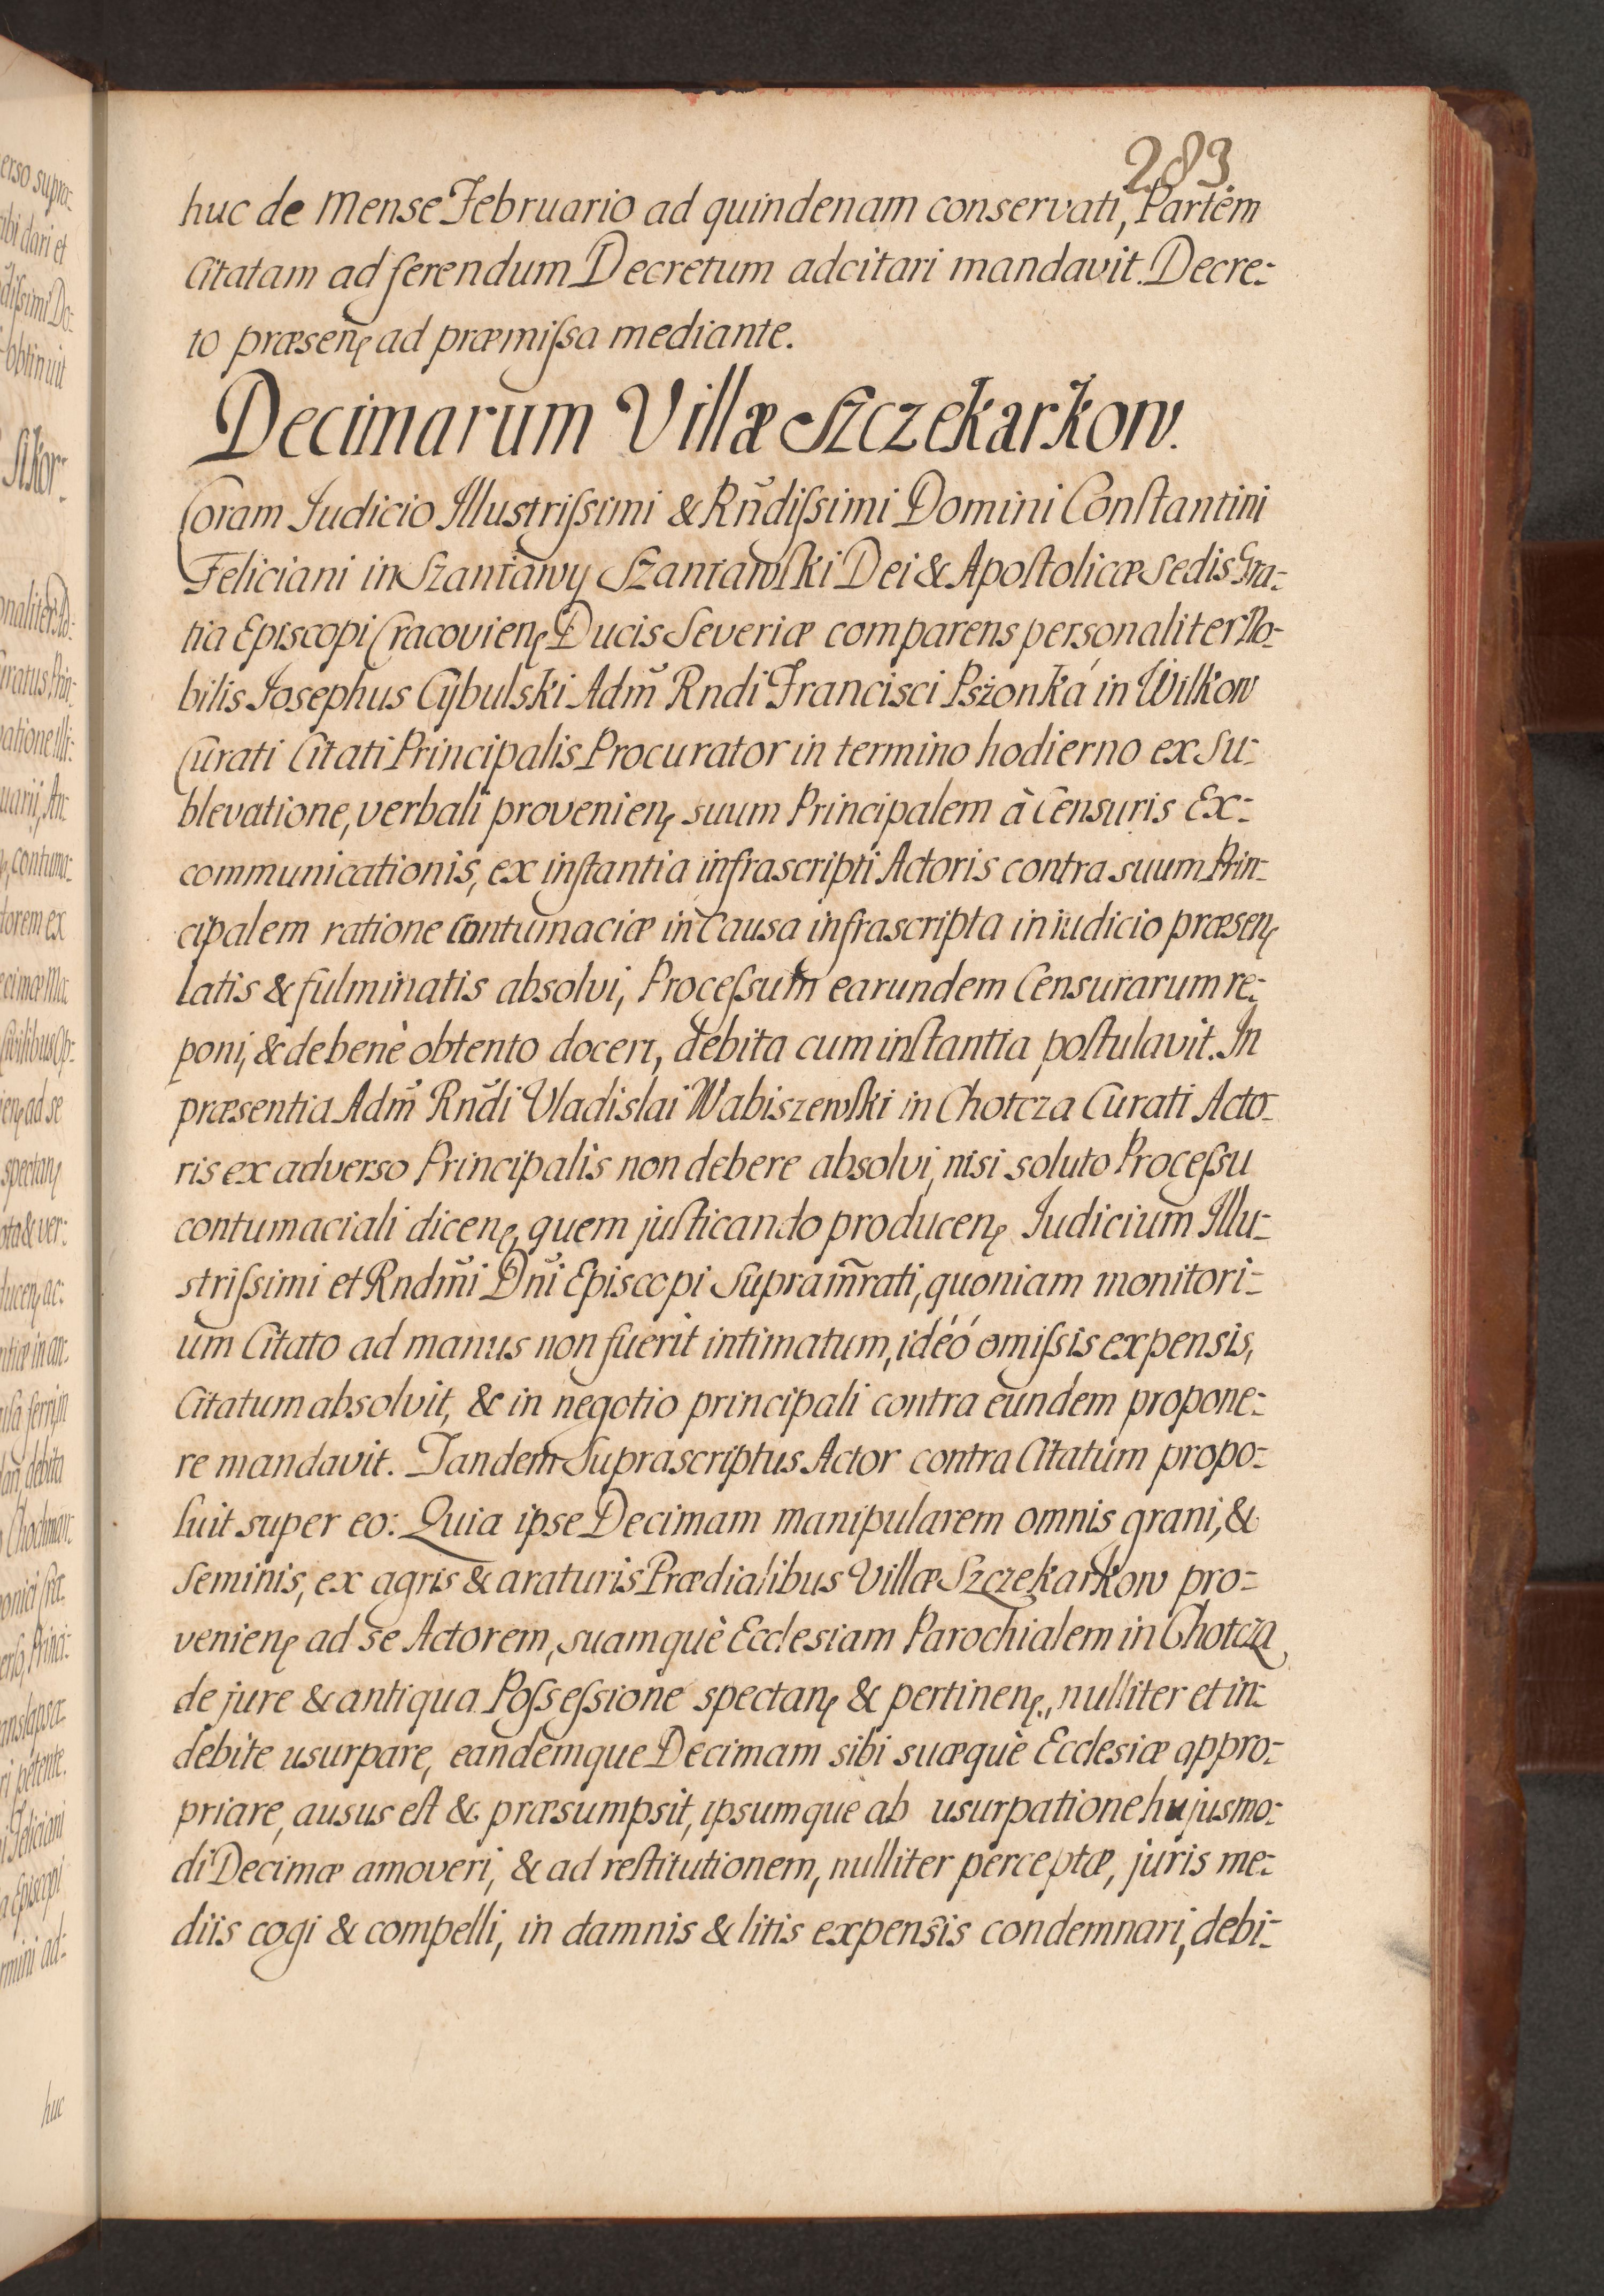 283
huc de Mense Februario ad quindenam conservati, Partem
Citatam ad ferendum Decretum adcitari mandavit. Decre-
to præsenę ad præmiſsa mediante.
Decimarum Villæ Szczekarkow.
Coram Judicio Illustriſsimi & Rñdiſsimi Domini Conſtantini
Feliciani in Szaniawy Szaniawſki Dei & Apoſtolicæ Sedis Gra-
tia Episcopi Cracovienę Ducis Severiæ comparens personaliter No-
bilis Josephus Cybulski Adm̃ Rndi Francisci Pszonká in Wilkow
Curati Citati Principalis Procurator in termino hodierno ex su-
blevatione, verbali provenienę suum Principalem à Censuris Ex-
communicationis, ex inſtantia infrascripti Actoris contra suum Prin-
cipalem ratione Contumaciæ in Causa infrascripta in iudicio præsenę
latis & fulminatis absolvi, Proceſsum earundem Censurarum re-
poni, & de benè obtento doceri, debita cum inſtantia poſtulavit. In
præsentia Adm̃ Rñdi Vladislai Wabiszewſki in Chotcza Curati Acto-
ris ex adverso Principalis non debere absolvi, nisi soluto Proceſsu
contumaciali dicenę, quem juſticando producenę Judicium Illu-
striſsimi et Rndm̃i Dñi Episcopi Supram̃rati, quoniam monitori-
um Citato ad manus non fuerit intimatum, idéó omiſsis expensis,
Citatum absolvit, & in negotio principali contra eundem propone-
re mandavit. Tandem Suprascriptus Actor contra Citatum propo-
suit super eo: Quia ipse Decimam manipularem omnis grani, &
Seminis, ex agris & araturis Prædialibus Villæ Szczekarkow pro-
venienę ad se Actorem, suamquè Ecclesiam Parochialem in Chotcza
de jure & antiqua Poſseſsione spectanę & pertinenę., nulliter et in-
debite usurpare, eandemque Decimam sibi suæquè Ecclesiæ appro-
priare, ausus eſt & præsumpsit, ipsumque ab usurpatione hujusmo-
di Decimæ amoveri, & ad reſtitutionem, nulliter perceptæ, juris me-
diis cogi & compelli, in damnis & litis expensis condemnari, debi-